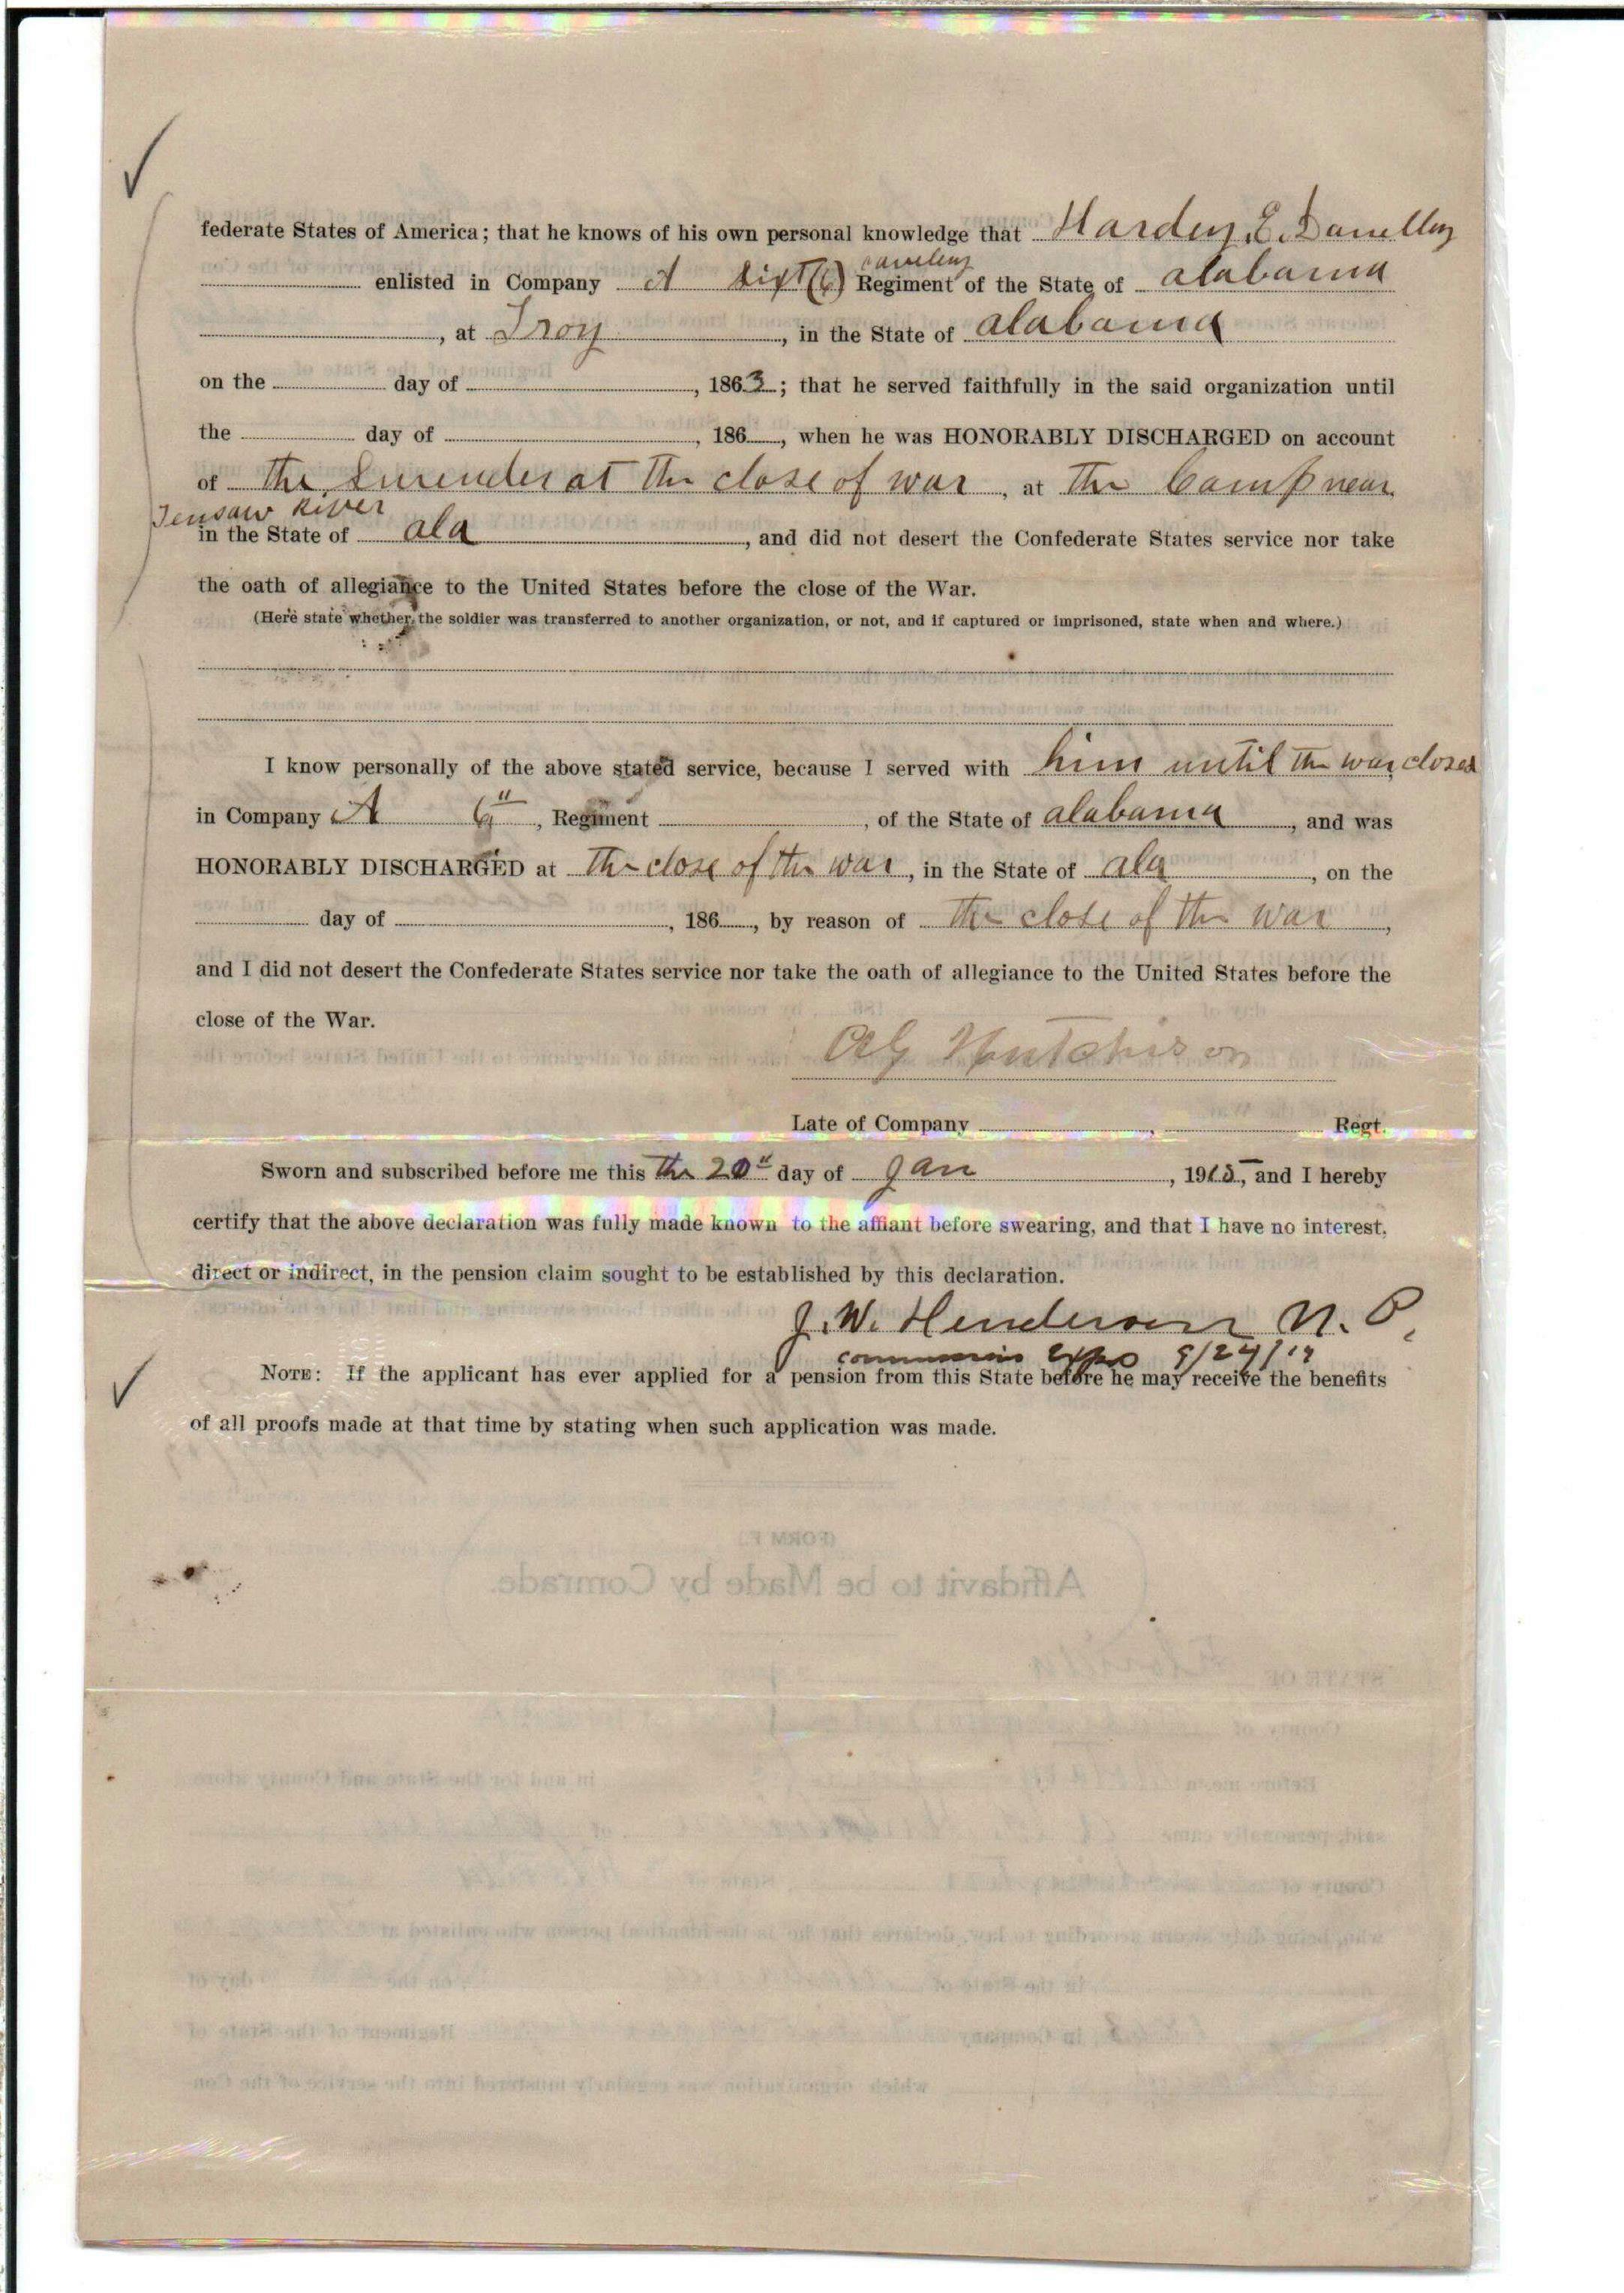 federate States of America; that he knows of his own personal knowledge that Hardy E. Danelley
enlisted in Company A Sixt (6) cavelery Regiment of the State of alabama
, at Troy, in the State of alabama
on the day of , 1863; that he served faithfully in the said organization until
the day of , 186 , when he was HONORABLY DISCHARGED on account
of the Surender at the close of war, at the Camp near
Tensaw River
in the State of ala, and did not desert the Confederate States service nor take
the oath of allegiance to the United States before the close of the War.
(Here state whether the soldier was transferred to another organization, or not, and if captured or imprisoned, state when and where.)
I know personally of the above stated service, because I served with him until the war closed
in Company A 6", Regiment , of the State of alabama, and was
HONORABLY DISCHARGED at the close of the war, in the State of ala, on the
day of , 186 , by reason of the close of the war,
and I did not desert the Confederate States service nor take the oath of allegiance to the United States before the
close of the War.
Hutchison
Late of Company , Regt.
Sworn and subscribed before me this the 20" day of Jan, 1915, and I hereby
certify that the above declaration was fully made known to the affiant before swearing, and that I have no interest,
direct or indirect, in the pension claim sought to be established by this declaration.
J. W. Henderson N. P.
commission Expires 9/24/
NOTE: If the applicant has ever applied for a pension from this State before he may receive the benefits
of all proofs made at that time by stating when such application was made.
(FORM F.)
Affidavit to be Made by Comrade.
STATE OF
County of
Before me a in and for the State and County afore
said, personally came of
County of State of
who, being duly sworn according to law, declares that he is the identical person who enlisted at
in the State of on the day of
in Company Regiment of the State of
which organization was regularly mustered into the service of the Con